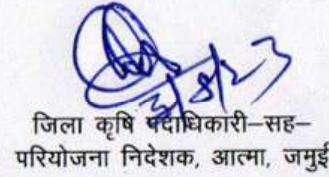 3/8/23
जिला कृषि पदाधिकारी–सह–
परियोजना निदेशक, आत्मा, जमुई